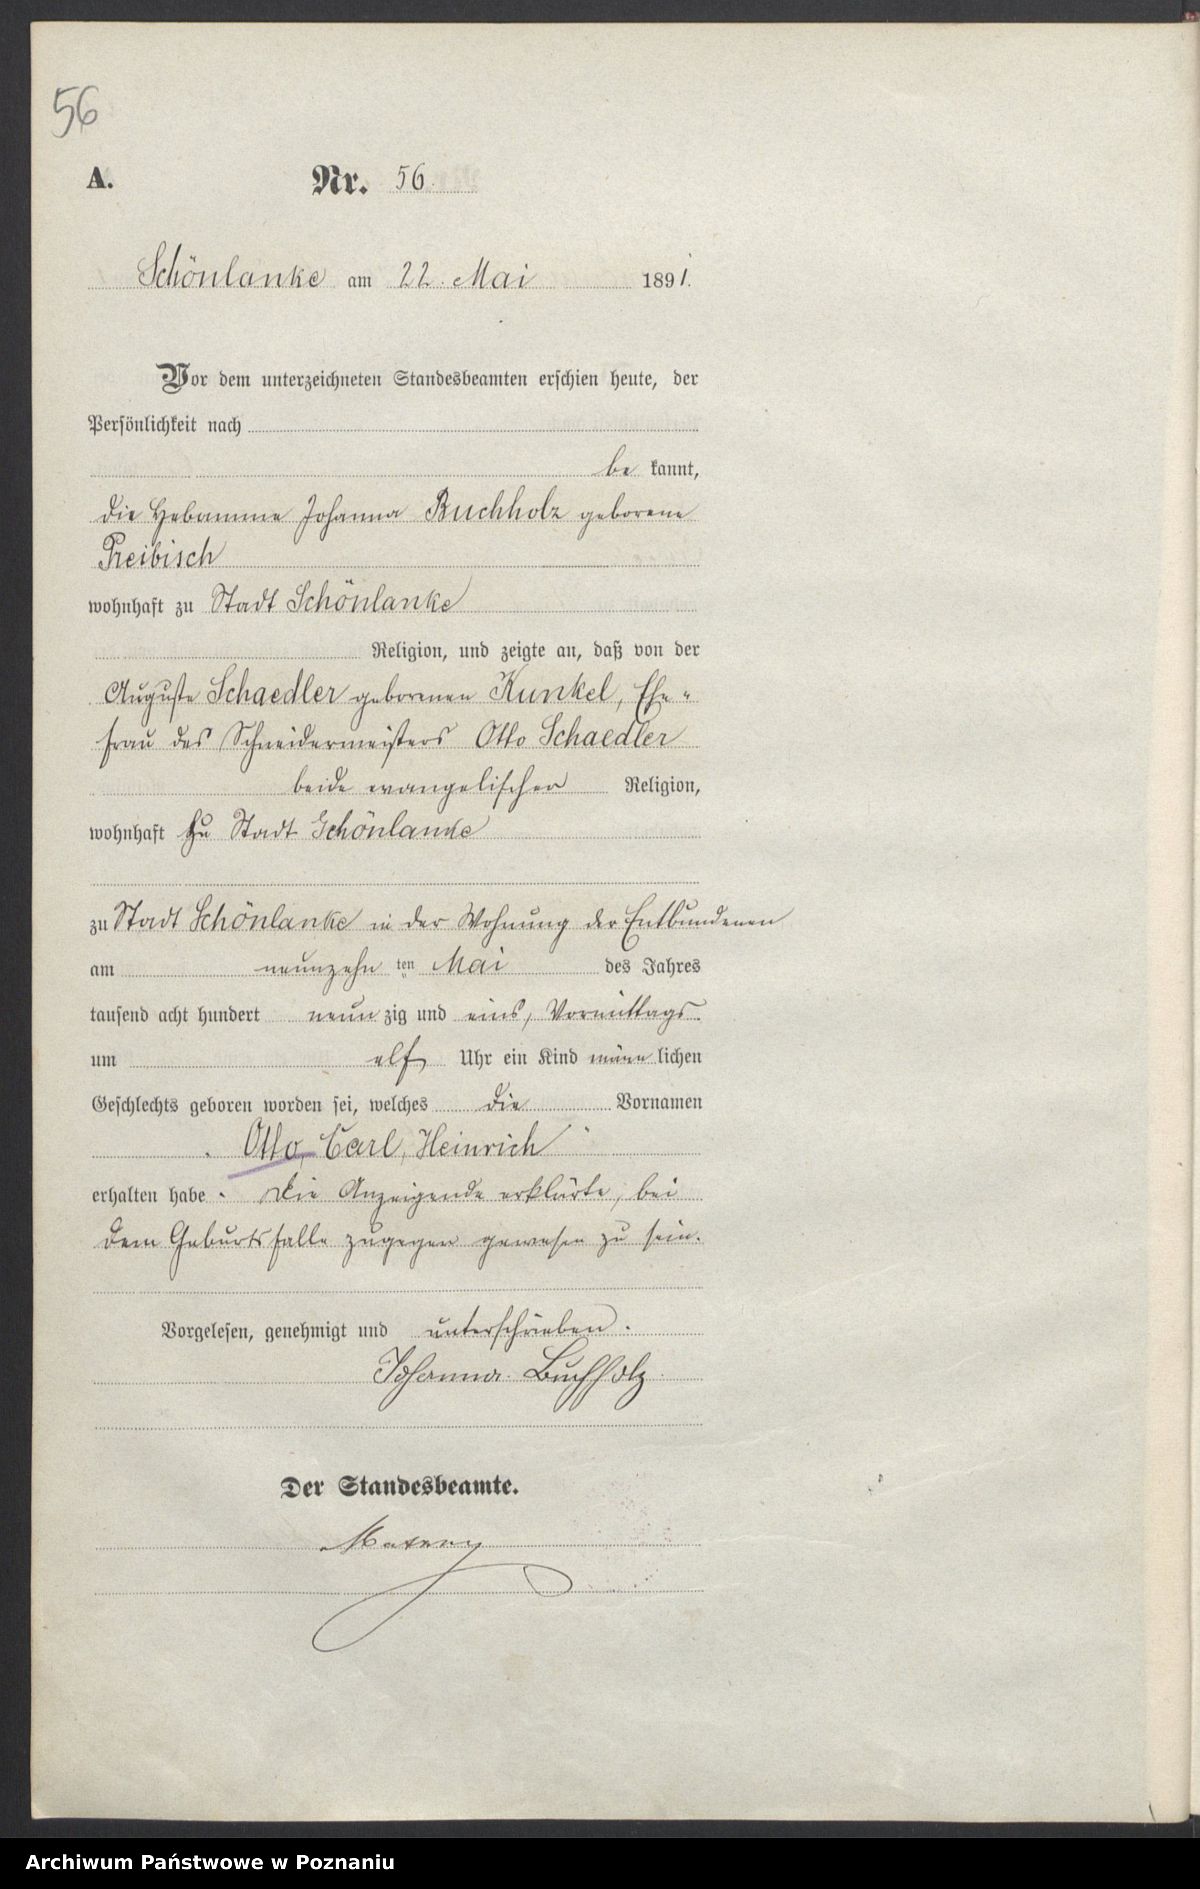 56
A. Nr. 56.
Schönlanke am 22. Mai 1891.
Vor dem unterzeichneten Standesbeamten erschien heute, der
Persönlichkeit nach
be kannt,
die Hebamme Johanna Buchholz geborene
Preibisch
wohnhaft zu Stadt Schönlanke
Religion, und zeigte an, daß von der
Auguste Schaedler geborenen Kunkel, Ehe-
frau des Schneidermeisters Otto Schaedler
beide evangelischer Religion,
wohnhaft zu Stadt Schönlanke
zu Stadt Schönlanke in der Wohnung der Entbundenen
am neunzehn ten Mai des Jahres
tausend acht hundert neun zig und eins, Vormittags
um elf Uhr ein Kind männ lichen
Geschlechts geboren worden sei, welches die Vornamen
Otto, Carl, Heinrich
erhalten habe. Die Anzeigende erklärte, bei
dem Geburtsfalle zugegen gewesen zu sein.
Vorgelesen, genehmigt und unterschrieben.
Johanna Buchholz
Der Standesbeamte.
Archiwum Państwowe w Poznaniu